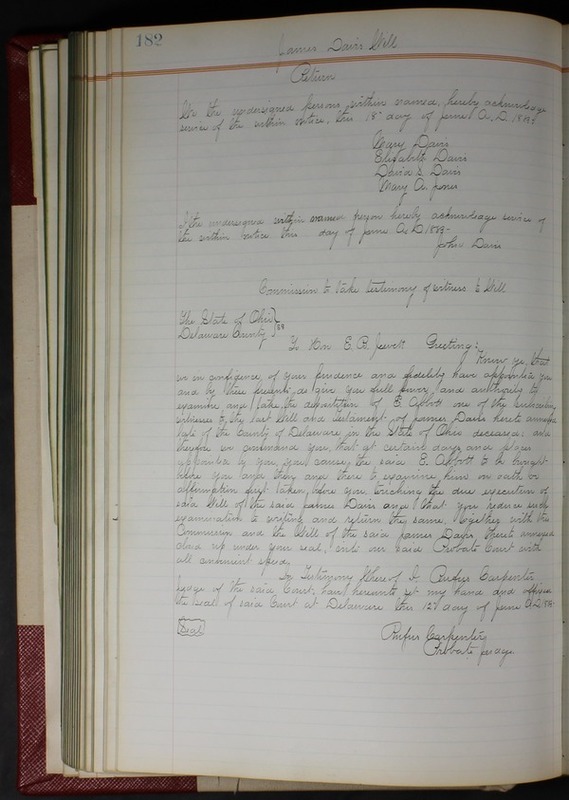 182
James Davis Will
Return
We the undersigned persons within named, hereby acknowledge
service of the within notice, this 18" day of June A.D. 1869
Mary Davis
Elizabeth Davis
David S. Davis
Mary A. Jones
I the undersigned within named person hereby acknowledge service of
the within notice this day of June A.D. 1869-
John Davis
Commission to take testimony of witness to Will
The State of Ohio
Delaware County } ss
To Hon E. B. Greeting:
Know ye, that
we in confidence of your prudence and fidelity have appointed you
and by these presents, do give you full power, and authority to
examine and take the deposition of E. Abbott one of the subscribing
witnesses to the last Will and Testament of James Davis hereto annexed
late of the County of Delaware in the State of Ohio deceased; and
therefore we command you, that at certain days and places
appointed by you, you cause the said E. Abbott to be brought
before you and then and there to examine him on oath or
affirmation first taken before you, touching the due execution of
said Will of the said James Davis and that you reduce such
examination to writing and return the same, together with this
Commission and the Will of the said James Davis, hereto annexed
closed up under your seal, into our said Probate Court with
all convenient speed.
In Testimony Whereof I, Rufus Carpenter
judge of the said Court, have hereunto set my hand and affixed
the seal of said Court at Delaware this 12" day of June A.D. 1869.
Seal
Rufus Carpenter
Probate Judge